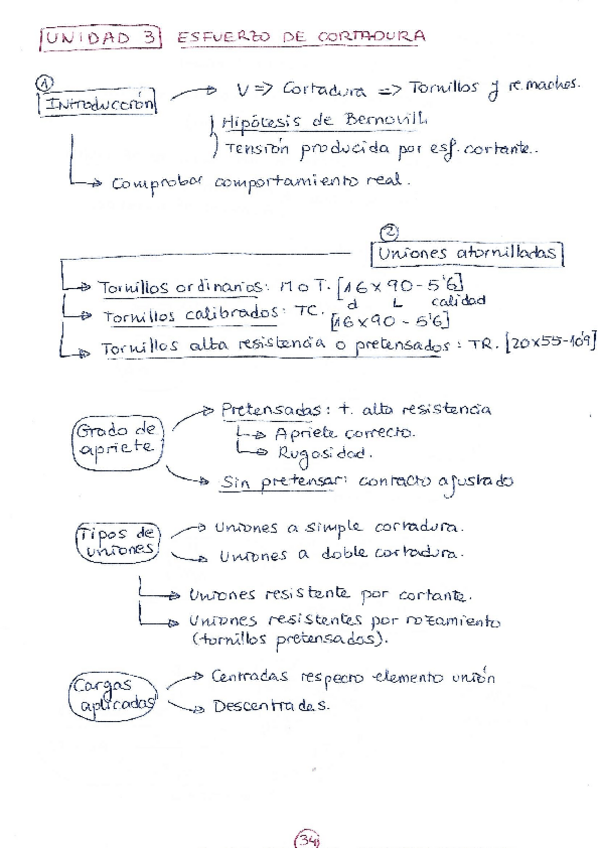 UNIDAD 3 ESFUERZO DE CORTADURA
①
Introducción
V => Cortadura => Tornillos y remaches.
Hipótesis de Bernovill.
Tensión producida por esf. cortante..
Comprobar comportamiento real.
②
Uniones atornilladas
Tornillos ordinarios: M o T. [16x90-5'6]
d L calidad
Tornillos calibrados: TC. [16x90-5'6]
Tornillos alta resistencia o pretensados: TR. [20x55-10'9]
Grado de
apriete
Pretensadas: t. alta resistencia
Apriete correcto.
Rugosidad.
Sin pretensar: contacto ajustado
Tipos de
uniones
Uniones a simple cortadura.
Uniones a doble cortadura.
Uniones resistente por cortante.
Uniones resistentes por rozamiento
(tornillos pretensados).
Cargas
aplicadas
Centradas respecto elemento unión
Descentradas.
34